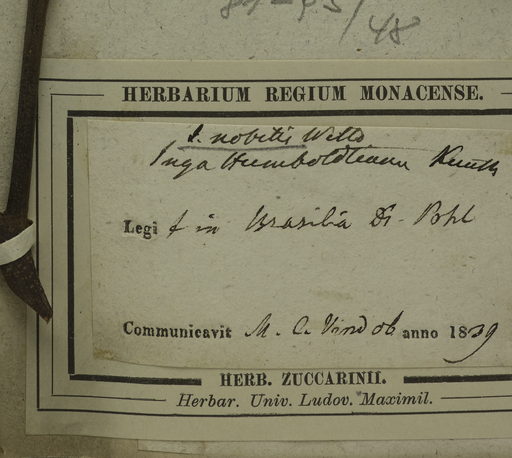 HERBARIUM REGIUM MONACENSE.
I. nobilis Willd
Inga Humboldtiana Kunth
Legit in Brasilia Dr. Pohl
Communicavit M. C. Vindob anno 1839
HERB. ZUCCARINII.
Herbar. Univ. Ludov. Maximil.